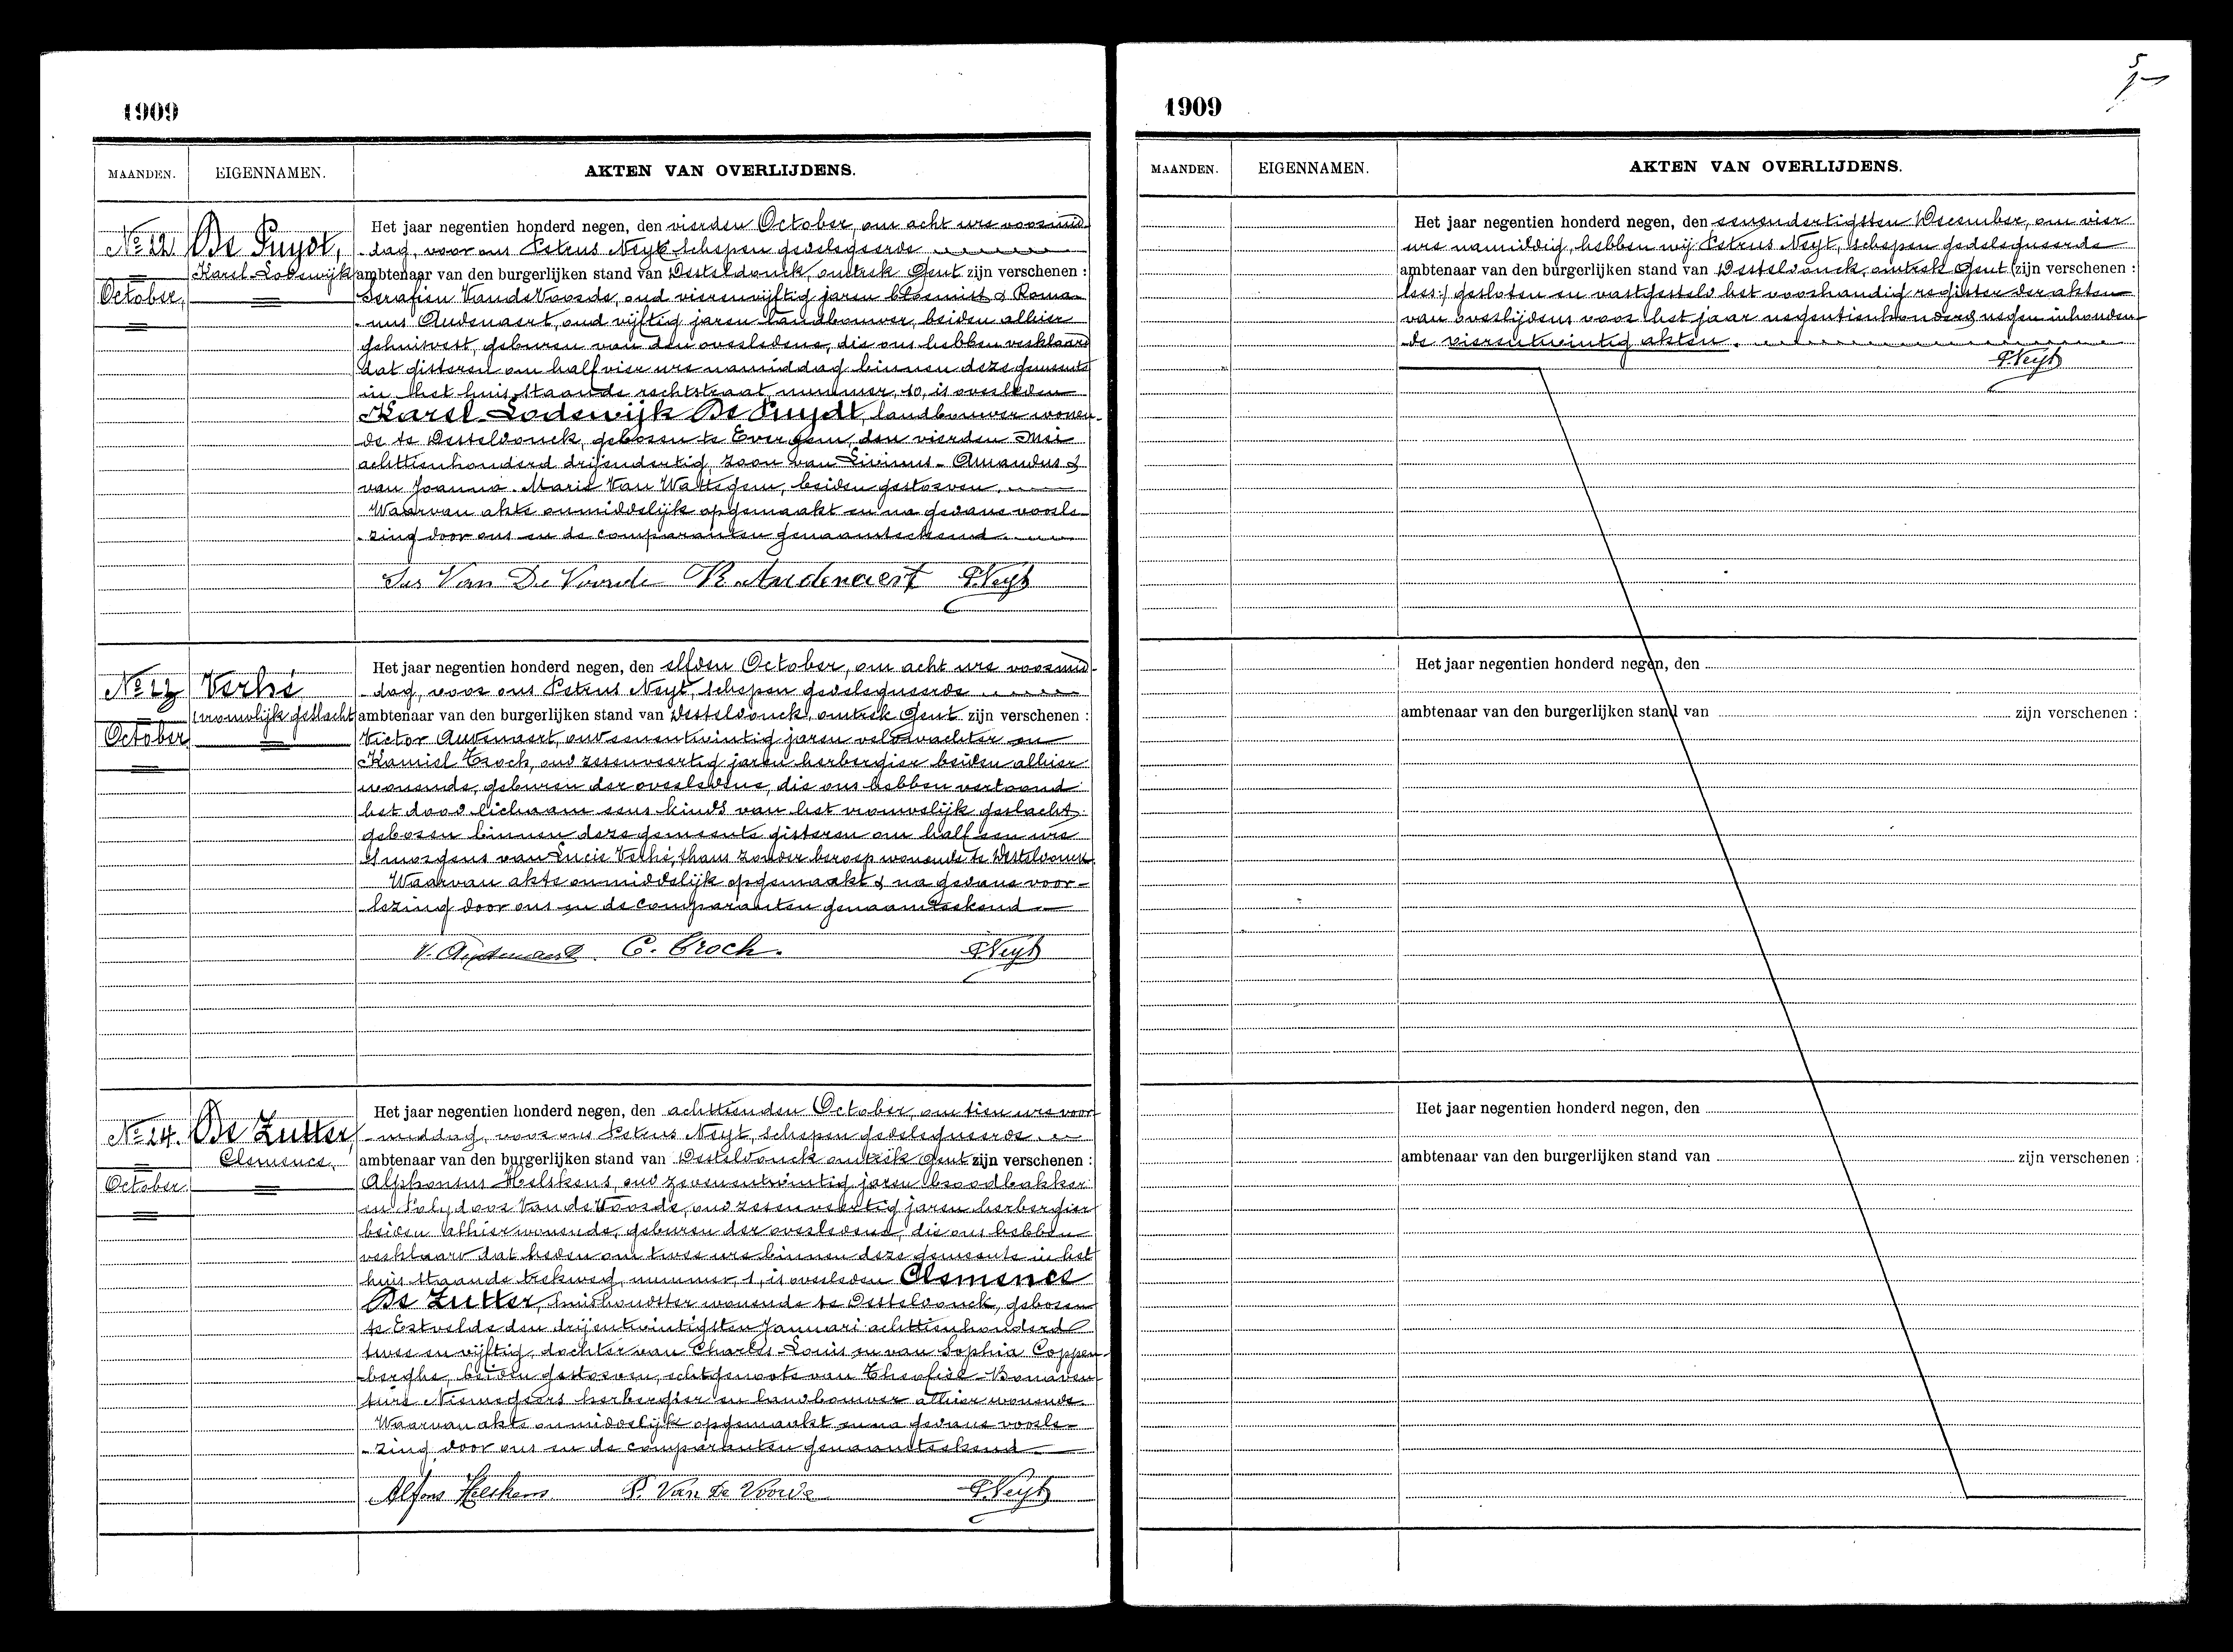 1909
MAANDEN. EIGENNAMEN. AKTEN VAN OVERLIJDENS.
No 22 De Puydt,
Karel Lodewijk
October,
Het jaar negentien honderd negen, den vierden October, om acht ure voormid-
dag, voor ons Petrus Neyt schepen gedelegeerde
ambtenaar van den burgerlijken stand van Desteldonck, omtrek Gent zijn verschenen :
Serafien Van de Voorde, oud vierenvijftig jaren bloemist & Roma-
nus Audenaert, oud vijftig jaren landbouwer, beiden alhier
gehuisvest, geburen van den overledene, die ons hebben verklaard
dat gisteren om half vier ure namiddag binnen deze gemeente
in het huis staande rechtstraat, nummer, 10, is overleden
Karel-Lodewijk De Puydt, landbouwer wonen-
de te Desteldonck, geboren te Evergem, den vierden Mei
achttienhonderd drijendertig, zoon van Livinus-Amandus &
van Joanna-Marie Van Wattegem, beiden gestorven.
Waarvan akte onmiddelijk opgemaakt en na gedane voorle-
zing door ons en de comparanten genaamteekend.
Ser Van De Voorde R. Audenaert P. Neyt
No 23 Verhé
(vrouwlijk geslacht
October
Het jaar negentien honderd negen, den elfden October, om acht ure voormid-
dag, voor ons Petrus Neyt, schepen gedelegueerde
ambtenaar van den burgerlijken stand van Desteldonck, omtrek Gent zijn verschenen :
Victor Audenaert, oud eenentwintig jaren veldwachter en
Kamiel Croch, oud zesenveertig jaren herbergier beiden alhier
wonende, geburen der overledene, die ons hebben vertoond
het dood lichaam eens kinds van het vrouwelijk geslacht
geboren binnen deze gemeente gisteren om half een ure
's morgens van Lucie Verhé, thans zonder beroep wonende te Desteldonck.
Waarvan akte onmiddelijk opgemaakt & na gedane voor-
lezing door ons en de comparanten genaamteekend
V. Audenaert. C. Croch. P. Neyt
No 24. De Zutter,
Clemence,
October.
Het jaar negentien honderd negen, den achttienden October, om tien ure voor-
middag, voor ons Petrus Neyt, schepen gedelegueerde
ambtenaar van den burgerlijken stand van Desteldonck omtrek Gent zijn verschenen :
Alphonsus Helskens, oud zevenentwintig jaren broodbakker
en Polydoor Van de Voorde, oud zesenveertig jaren herbergier
beiden alhier wonende, geburen der overledene, die ons hebben
verklaard dat heden om twee ure binnen deze gemeente in het
huis staande trekweg, nummer, 1, is overleden Clemence
De Zutter, huishoudster wonende te Desteldonck, geboren
te Estvelde den drijentwintigsten Januari achttienhonderd
twee en vijftig, dochter van Charles-Louis en van Sophia Coppen-
berghe, beiden gestorven, echtgenoote van Theofiel-Bonaven-
ture Niemegeers herbergier en landbouwer alhier wonende.
Waarvan akte onmiddelijk opgemaakt en na gedane voorle-
zing door ons en de comparanten genaamteekend
Alfons Helskens. P. Van De Voorde P. Neyt
5
1909
MAANDEN. EIGENNAMEN. AKTEN VAN OVERLIJDENS.
Het jaar negentien honderd negen, den eenendertigsten December, om vier
ure namiddag, hebben wij Petrus Neyt, schepen gedelegueerde
ambtenaar van den burgerlijken stand van Desteldonck, omtrek Gent (zijn verschenen :
lees:) gesloten en vastgesteld het voorhandig register der akten
van overlijdens voor het jaar negentienhonderd negen inhouden-
de vierentwintig akten.
P. Neyt
Het jaar negentien honderd negen, den
ambtenaar van den burgerlijken stand van zijn verschenen :
Het jaar negentien honderd negen, den
ambtenaar van den burgerlijken stand van zijn verschenen :